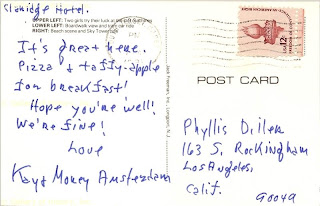 Hotel.
UPPER LEFT: Two girls try their luck at
LOWER LEFT: Boardwalk view and
RIGHT: Beach scene and Sky Tower
It's great here.
Pizza & taffy-apple
for breakfast!
Hope you're well!
We're fine!
Love
Kay & Morey Amsterdam
POST CARD
USA 12c
Phyllis Diller
163 S. Rockingham
Los Angeles,
Calif.
90049